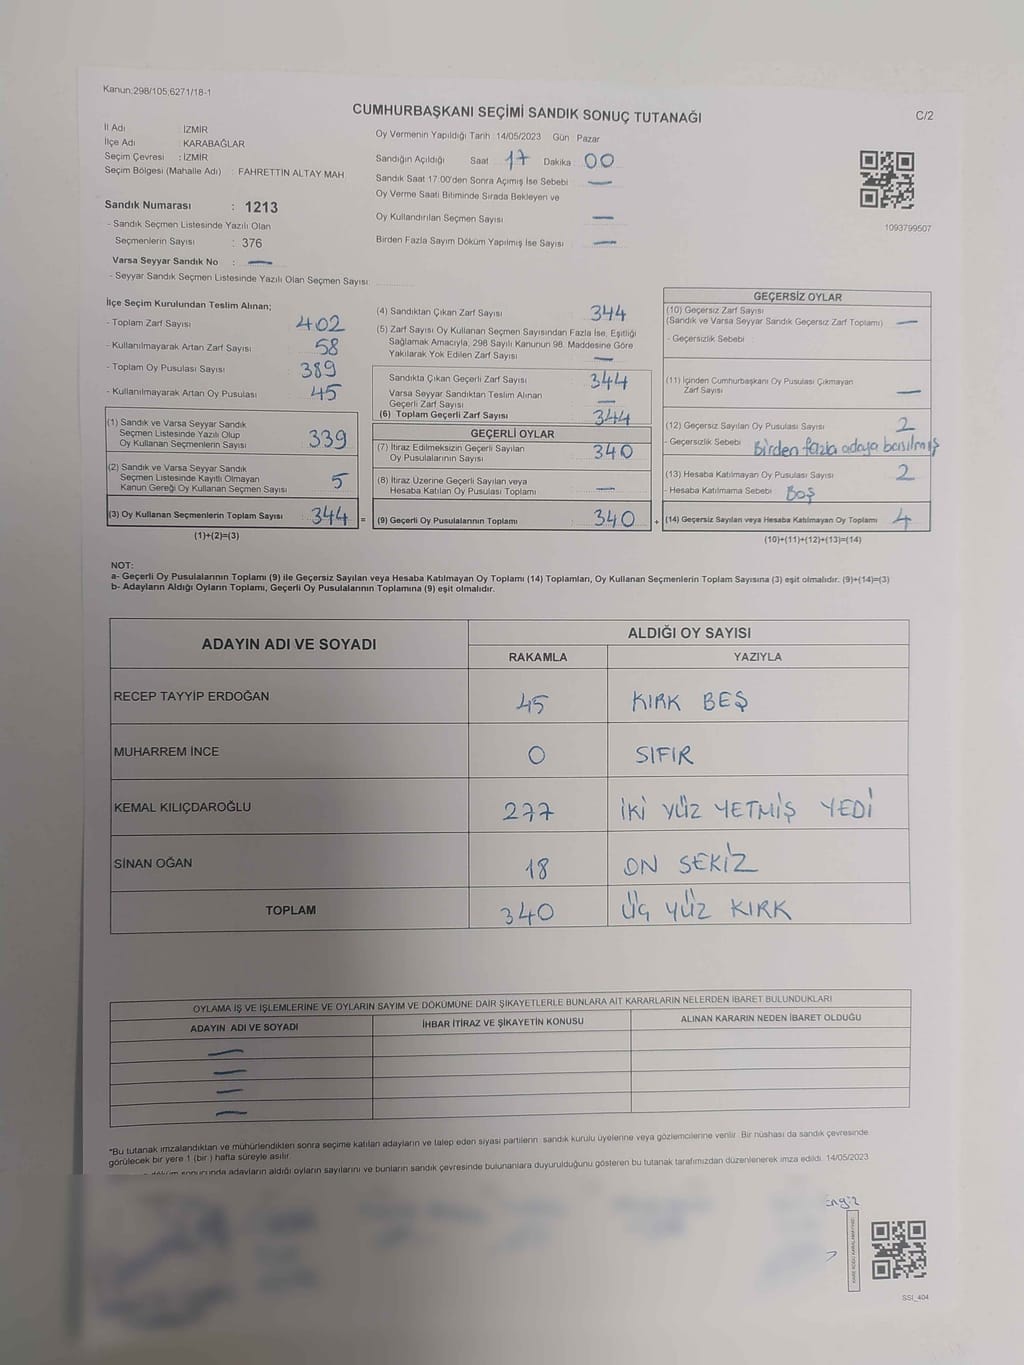 Kanun;298/105,6271/18-1
CUMHURBAŞKANI SEÇİMİ SANDIK SONUÇ TUTANAĞI
C/2
İl Adı : İZMİR
İlçe Adı : KARABAĞLAR
Seçim Çevresi : İZMİR
Seçim Bölgesi (Mahalle Adı) : FAHRETTİN ALTAY MAH.
Oy Vermenin Yapıldığı Tarih :14/05/2023 Gün : Pazar
Sandığın Açıldığı Saat 17 Dakika 00
Sandık Saat 17:00'den Sonra Açımış İse Sebebi : —
Oy Verme Saati Bitiminde Sırada Bekleyen ve
Oy Kullandırılan Seçmen Sayısı : —
Birden Fazla Sayım Döküm Yapılmış İse Sayısı : —
1093799507
Sandık Numarası : 1213
- Sandık Seçmen Listesinde Yazılı Olan
Seçmenlerin Sayısı : 376
Varsa Seyyar Sandık No : —
- Seyyar Sandık Seçmen Listesinde Yazılı Olan Seçmen Sayısı:
İlçe Seçim Kurulundan Teslim Alınan;
- Toplam Zarf Sayısı : 402
- Kullanılmayarak Artan Zarf Sayısı : 58
- Toplam Oy Pusulası Sayısı : 389
- Kullanılmayarak Artan Oy Pusulası : 45
(1) Sandık ve Varsa Seyyar Sandık
Seçmen Listesinde Yazılı Olup
Oy Kullanan Seçmenlerin Sayısı 339
(2) Sandık ve Varsa Seyyar Sandık
Seçmen Listesinde Kayıtlı Olmayan
Kanun Gereği Oy Kullanan Seçmen Sayısı 5
(3) Oy Kullanan Seçmenlerin Toplam Sayısı 344
(1)+(2)=(3)
(4) Sandıktan Çıkan Zarf Sayısı : 344
(5) Zarf Sayısı Oy Kullanan Seçmen Sayısından Fazla İse, Eşitliği
Sağlamak Amacıyla, 298 Sayılı Kanunun 98. Maddesine Göre
Yakılarak Yok Edilen Zarf Sayısı : —
Sandıkta Çıkan Geçerli Zarf Sayısı : 344
Varsa Seyyar Sandıktan Teslim Alınan
Geçerli Zarf Sayısı : —
(6) Toplam Geçerli Zarf Sayısı : 344
GEÇERLİ OYLAR
(7) İtiraz Edilmeksizin Geçerli Sayılan
Oy Pusulalarının Sayısı : 340
(8) İtiraz Üzerine Geçerli Sayılan veya
Hesaba Katılan Oy Pusulası Toplamı : —
= (9) Geçerli Oy Pusulalarının Toplamı : 340 +
GEÇERSİZ OYLAR
(10) Geçersiz Zarf Sayısı
(Sandık ve Varsa Seyyar Sandık Geçersiz Zarf Toplamı) : —
- Geçersizlik Sebebi :
(11) İçinden Cumhurbaşkanı Oy Pusulası Çıkmayan
Zarf Sayısı : —
(12) Geçersiz Sayılan Oy Pusulası Sayısı : 2
- Geçersizlik Sebebi : Birden fazla adaya basılmış
(13) Hesaba Katılmayan Oy Pusulası Sayısı : 2
- Hesaba Katılmama Sebebi : Boş
(14) Geçersiz Sayılan veya Hesaba Katılmayan Oy Toplamı : 4
(10)+(11)+(12)+(13)=(14)
NOT:
a- Geçerli Oy Pusulalarının Toplamı (9) ile Geçersiz Sayılan veya Hesaba Katılmayan Oy Toplamı (14) Toplamları, Oy Kullanan Seçmenlerin Toplam Sayısına (3) eşit olmalıdır. (9)+(14)=(3)
b- Adayların Aldığı Oyların Toplamı, Geçerli Oy Pusulalarının Toplamına (9) eşit olmalıdır.
ADAYIN ADI VE SOYADI
ALDIĞI OY SAYISI
RAKAMLA YAZIYLA
RECEP TAYYİP ERDOĞAN 45 KIRK BEŞ
MUHARREM İNCE 0 SIFIR
KEMAL KILIÇDAROĞLU 277 İKİ YÜZ YETMİŞ YEDİ
SİNAN OĞAN 18 ON SEKİZ
TOPLAM 340 ÜÇ YÜZ KIRK
OYLAMA İŞ VE İŞLEMLERİNE VE OYLARIN SAYIM VE DÖKÜMÜNE DAİR ŞİKAYETLERLE BUNLARA AİT KARARLARIN NELERDEN İBARET BULUNDUKLARI
ADAYIN ADI VE SOYADI İHBAR İTİRAZ VE ŞİKAYETİN KONUSU ALINAN KARARIN NEDEN İBARET OLDUĞU
—
—
—
—
*Bu tutanak imzalandıktan ve mühürlendikten sonra seçime katılan adayların ve talep eden siyasi partilerin sandık kurulu üyelerine veya gözlemcilerine verilir. Bir nüshası da sandık çevresinde
görülecek bir yere 1 (bir) hafta süreyle asılır.
döküm sonucunda adayların aldığı oyların sayılarını ve bunların sandık çevresinde bulunanlara duyurulduğunu gösteren bu tutanak tarafımızdan düzenlenerek imza edildi. 14/05/2023
SSI_404